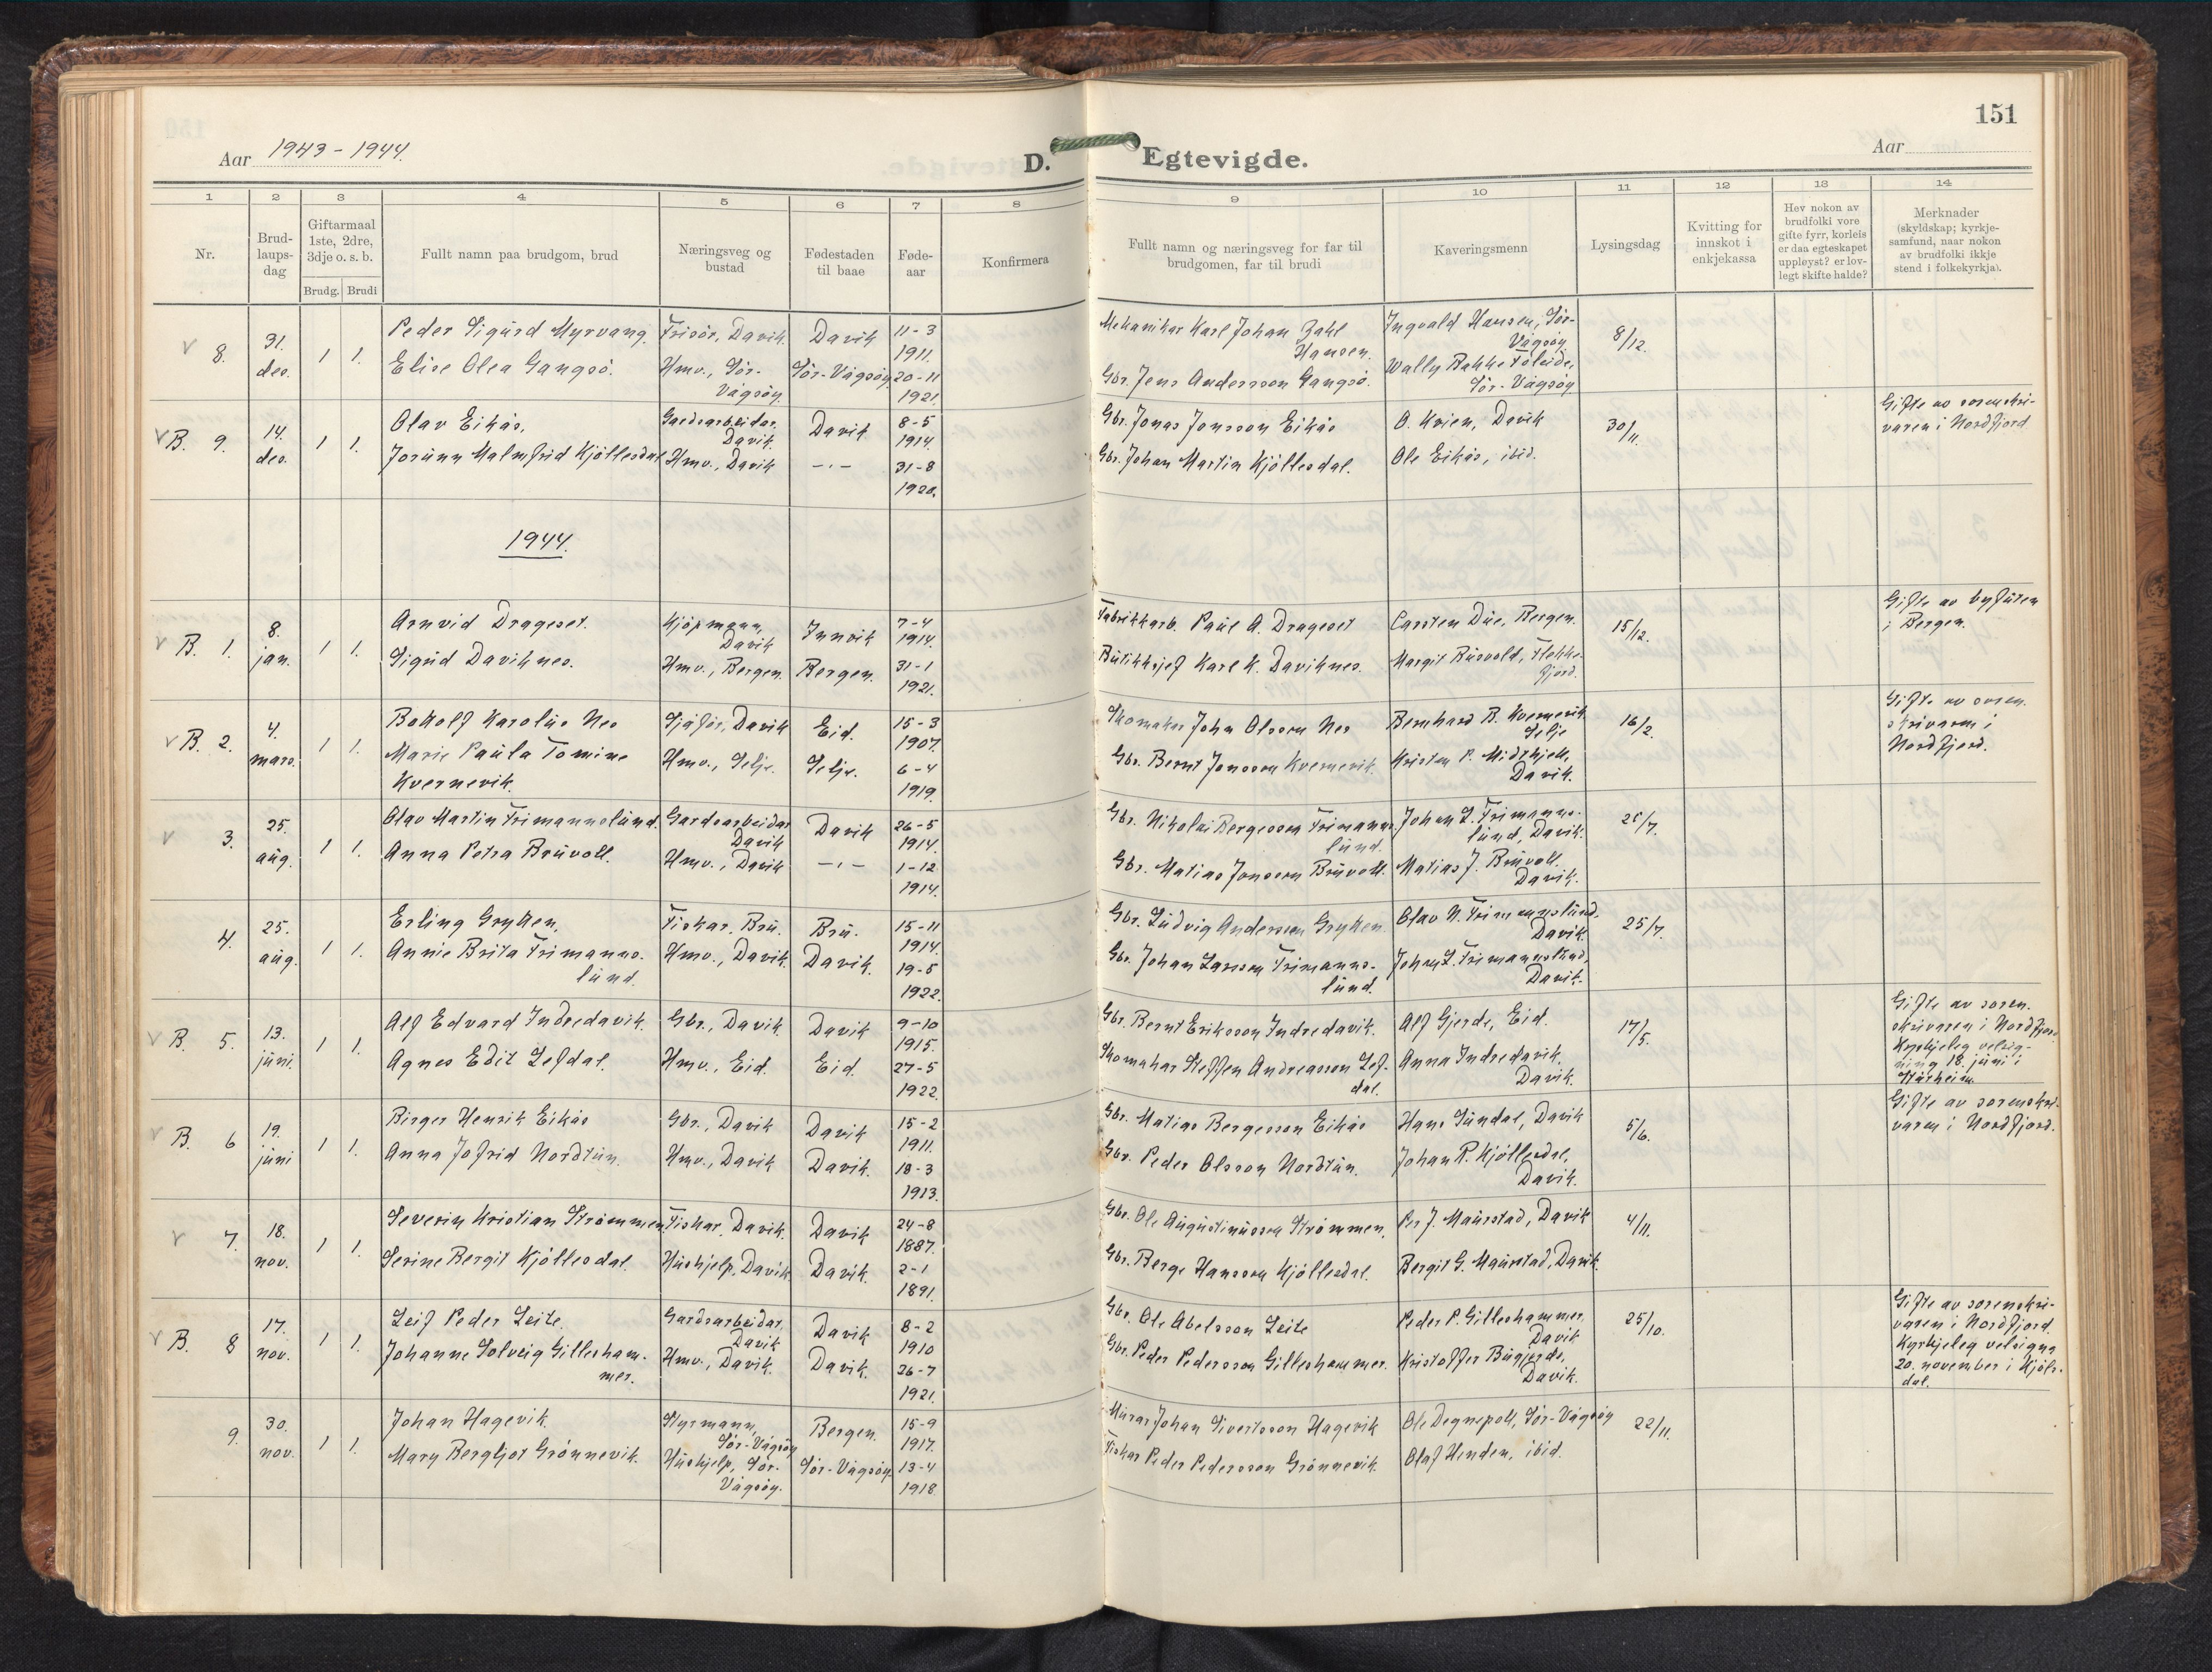 151
Aar 1943-1944.
D. Egtevigde.
Aar
1 2 3 4 5 6 7 8 9 10 11 12 13 14
Nr.
Brud-
laups-
dag
Giftarmaal
1ste, 2dre,
3dje o. s. b.
Brudg. Brudi
Fullt namn paa brudgom, brud
Næringsveg og
bustad
Fødestaden
til baae
Føde-
aar
Konfirmera
Fullt namn og næringsveg for far til
brudgomen, far til brudi
Kaveringsmenn
Lysingsdag
Kvitting for
innskot i
enkjekassa
Hev nokon av
brudfolki vore
gifte fyrr, korleis
er daa egteskapet
uppløyst? er lov-
legt skifte halde?
Merknader
(skyldskap; kyrkje-
samfund, naar nokon
av brudfolki ikkje
stend i folkekyrkja).
V 8.
31.
des.
1 1.
Peder Sigurd Myrvang.
Elise Olea Gangsö.
Frisör, Davik.
Hmv., Sör-
Vågsöy.
Davik
Sör-Vågsöy
11-3
1911.
20-11
1921.
Mekanikar Karl Johan Zahl
Hansen.
Gbr. Jens Andersson Gangsö.
Ingvald Hansen, Sör-
Vågsöy
Wally Bakke Töleide,
Sör-Vågsöy
8/12.
V B. 9.
14.
des.
1 1.
Olav Eikås,
Jorunn Malmfrid Kjöllesdal
Gardsarbeidar,
Davik
Hmv., Davik
Davik
-"-
8-5
1914
31-8
1920.
Gbr. Jonas Jonsson Eikås
Gbr. Johan Martin Kjöllesdal.
O. Kvien, Davik
Ole Eikås, ibid.
30/11.
Gifte av sorenskri-
varen i Nordfjord
1944.
V B. 1.
8.
jan.
1 1.
Arnvid Drageset.
Sigrid Daviknes.
Kjöpmann,
Davik
Hmv., Bergen.
Innvik
Bergen.
7-4
1914.
31-1
1921.
Fabrikkarb. Paul A. Drageset
Butikksjef Karl K. Daviknes.
Carsten Due, Bergen.
Margit Rusvold, Flekke-
fjord.
15/12.
Gifte av byfuten
i Bergen.
V B. 2.
4.
mars.
1 1.
Botolf Karolus Nes
Marie Paula Tomine
Kvernevik.
Sjåför, Davik
Hmv., Selje.
Eid.
Selje.
15-3
1907.
6-4
1919.
Skomakar John Olsson Nes
Gbr. Bernt Jonsson Kvernevik.
Bernhard B. Kvernevik
Selje
Kristen P. Midtkjell,
Davik.
16/2.
Gifte av soren-
skrivaren i
Nordfjord.
V 3.
25.
aug.
1 1.
Olav Martin Frimannslund.
Anna Petra Bruvoll.
Gardsarbeidar
Davik
Hmv., Davik
Davik
-"-
26-5
1914.
1-12
1914.
Gbr. Nikolai Bergesson Frimanns-
lund.
Gbr. Matias Jonsson Bruvoll.
Johan L. Frimanns-
lund, Davik.
Matias J. Bruvoll.
Davik.
25/7.
4.
25.
aug.
1 1.
Erling Grytten.
Annie Brita Frimanns-
lund.
Fiskar, Bru.
Hmv., Davik.
Bru.
Davik.
15-11
1914.
19-5
1922.
Gbr. Ludvig Andersson Grytten.
Gbr. Johan Larsson Frimanns-
lund.
Olav N. Frimannslund.
Davik.
Johan L. Frimannslund,
Davik.
25/7.
V B. 5.
13.
juni.
1 1.
Alf Edvard Indredavik.
Agnes Edit Lefdal.
Gbr., Davik.
Hmv., Eid.
Davik
Eid.
9-10
1915.
27-5
1922.
Gbr. Bernt Eriksson Indredavik.
Skomakar Steffen Andreasson Lef-
dal.
Alf Gjerde, Eid.
Anna Indredavik.
Davik.
17/5.
Gifte av soren-
skrivaren i Nordfjord
Kyrkjeleg velsig-
ning 18. juni i
Stårheim.
V B. 6
19.
juni
1 1.
Birger Henrik Eikås
Anna Jofrid Nordtun.
Gbr., Davik
Hmv., Davik
Davik
Davik.
15-2
1911.
18-3
1913.
Gbr. Matias Bergesson Eikås
Gbr. Peder Olsson Nordtun.
Hans Sundal, Davik
Johan R. Kjöllesdal,
Davik.
5/6.
Gifte av sorenskri-
varen i Nordfjord.
V 7.
18.
nov.
1 1.
Severin Kristian Strömmen.
Serine Bergit Kjöllesdal.
Fiskar, Davik.
Hushjelp, Davik.
Davik
Davik.
24-8
1887.
2-1
1891.
Gbr. Ole Augustinusson Strömmen.
Gbr. Berge Hansson Kjöllesdal.
Per J. Maurstad, Davik
Bergit G. Maurstad, Davik.
4/11.
V B. 8
17.
nov.
1 1.
Leif Peder Leite.
Johanne Solveig Gillesham-
mer.
Gardsarbeidar,
Davik
Hmv., Davik.
Davik
Davik.
8-2
1910
26-7
1921.
Gbr. Ole Abelsson Leite
Gbr. Peder Pedersson Gilleshammer.
Peder P. Gilleshammer,
Davik
Kristoffer Bugjerde,
Davik.
25/10.
Gifte av sorenskri-
varen i Nordfjord.
Kyrkjeleg velsigna
20. november i Kjöls-
dal.
9.
30.
nov.
1 1.
Johan Hagevik
Mary Bergljot Grönnevik.
Styrmann,
Sör-Vågsöy
Hushjelp, Sör-
Vågsöy.
Bergen.
Sör-Vågsöy.
15-9
1917.
13-4
1918.
Murar Johan Sivertsson Hagevik
Fiskar Peder Pedersson Grönnevik.
Ole Degnepoll, Sör-Vågsöy
Olaf Henden, ibid.
22/11.